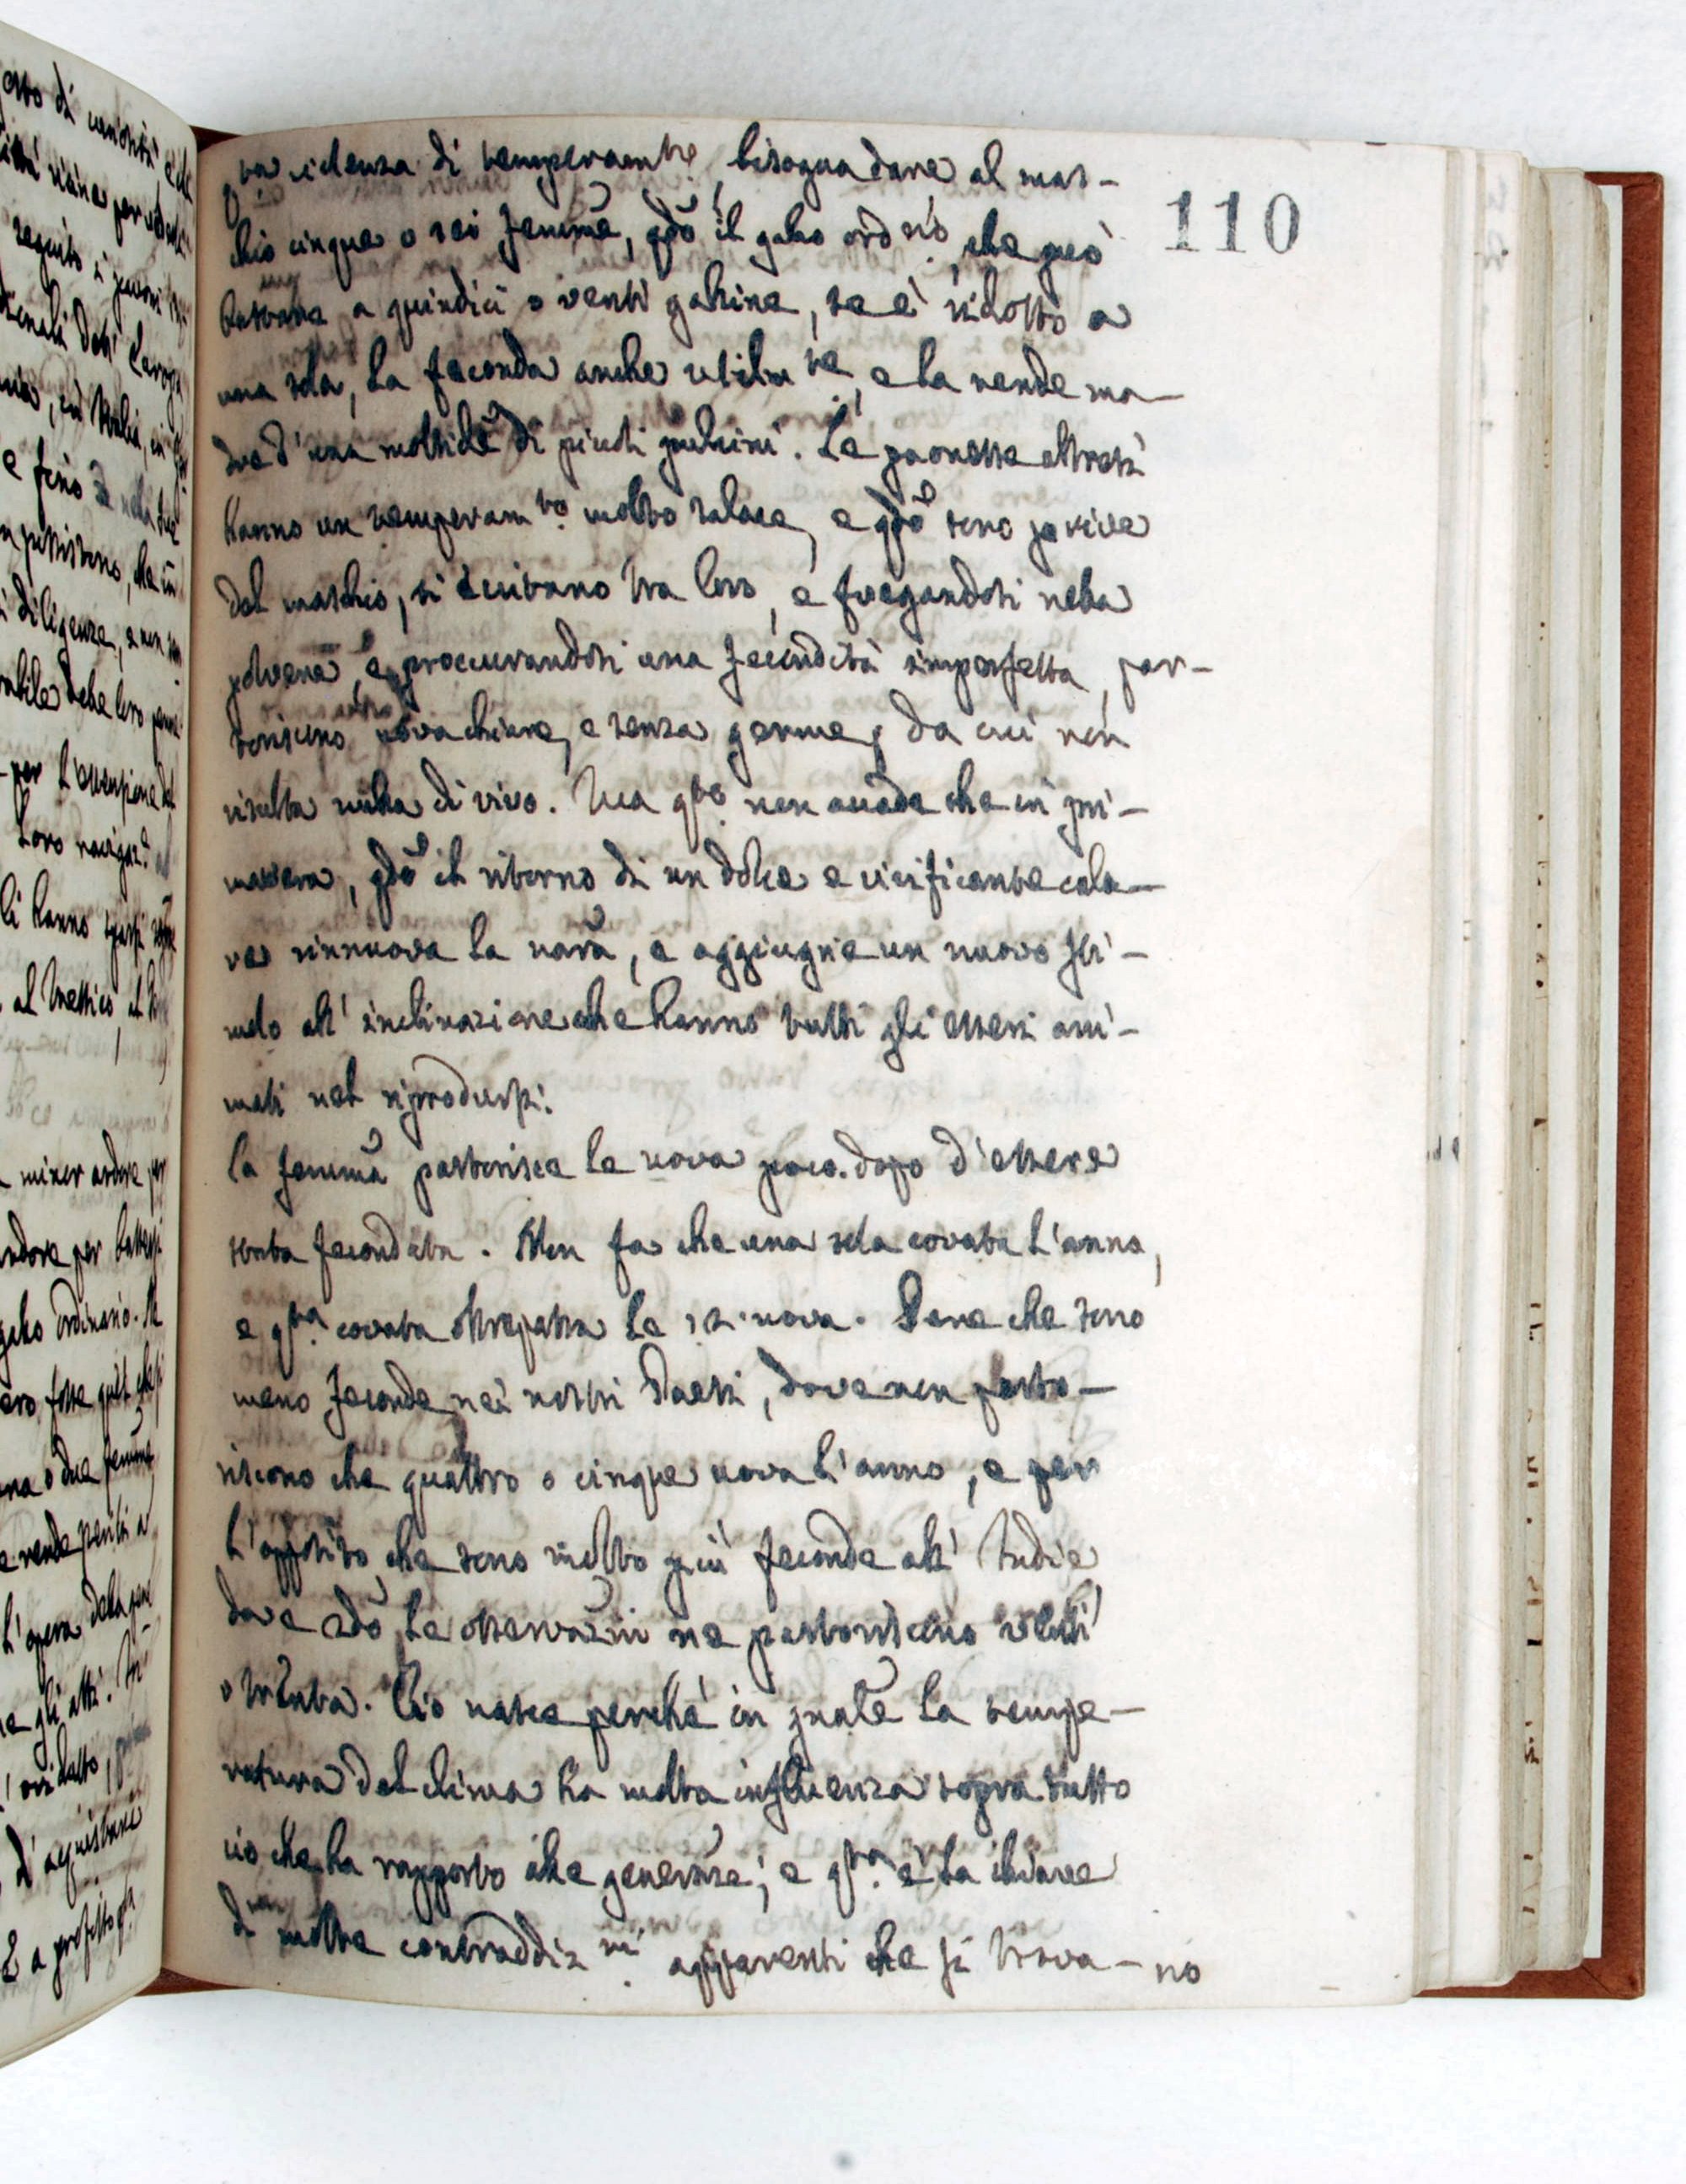 110
ta videnza di temperam.te, bisogna dare al mas-
chio cinque o sei femine, qdo il gallo ord.rio, che può
bastare a quindici o venti galline, se è ridotto a
una sola, la feconda anche utilm.te, e la rende ma-
dre d'una moltitudẽ di piccoli pulcini. Le paonesse altresì
hanno un temperam.to molto salace, e qdo sono prive
del maschio, si eccitano tra loro, e fregandosi nella
polvere, e procurandosi una fecondità imperfetta, par-
toriscono uova chiare, e senza germe, da cui non
risulta nulla di vivo. Ma q.to non accade che in pri-
mavera, qdo il ritorno di un dolce e vivificante calo-
re rinnuova la nat̃a, e aggiugne un nuovo sti-
molo all' inclinazione che hanno tutti gli esseri ani-
mati nel riprodursi.
La femina partorisce le uova poco dopo d'essere
stata fecondata. Non fa che una sola covata l'anno,
e q.ta covata oltrepassa le 12 uova. Pare che sono
meno feconde nei nostri Paesi, dove non parto-
riscono che quattro o cinque uova l'anno, e per
l'opposito che sono molto più feconde all' Indie
dove sẽdo le osservaz̃ni ne partoriscono venti
o trenta. Ciò nasce perchè in gñale la tempe-
ratura del clima ha molta influenza sopra tutto
ciò che ha rapporto alla generaz̃e; e q.ta è la chiave
di molte contraddiz.ni apparenti che si trova-no